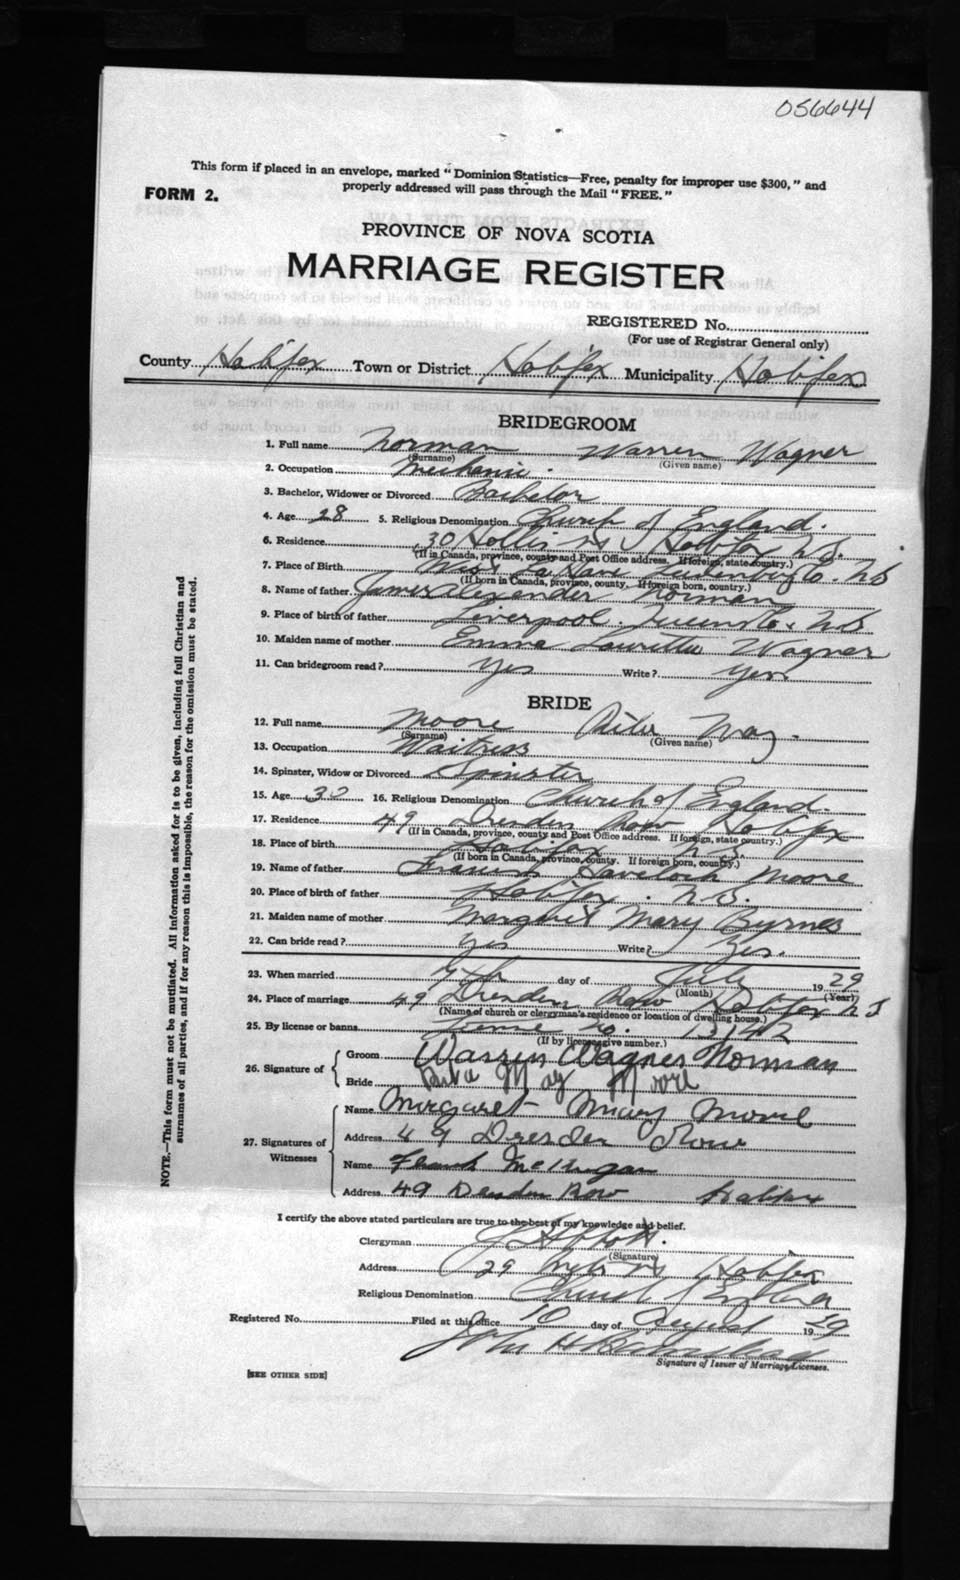 056644
This form if placed in an envelope, marked "Dominion Statistics—Free, penalty for improper use $300," and
properly addressed will pass through the Mail "FREE."
FORM 2.
PROVINCE OF NOVA SCOTIA
MARRIAGE REGISTER
REGISTERED No.
(For use of Registrar General only)
County Halifax Town or District Halifax Municipality Halifax
BRIDEGROOM
1. Full name Norman Warren Wagner
(Surname) (Given name)
2. Occupation Mechanic.
3. Bachelor, Widower or Divorced Bachelor
4. Age 28 5. Religious Denomination Church of England.
6. Residence 30 Hollis St Halifax N.S.
(If in Canada, province, county and Post Office address. If foreign, state country.)
7. Place of Birth West LaHave Lunenburg Co. N.S
(If born in Canada, province, county. If foreign born, country.)
8. Name of father James Alexander Norman
9. Place of birth of father Liverpool. Queens Co. N.S
10. Maiden name of mother Emma Lauretta Wagner
11. Can bridegroom read? Yes Write? Yes.
BRIDE
12. Full name Moore Rita May.
(Surname) (Given name)
13. Occupation Waitress
14. Spinster, Widow or Divorced Spinster
15. Age 30 16. Religious Denomination Church of England.
17. Residence 49 Dresden Row Halifax
(If in Canada, province, county and Post Office address. If foreign, state country.)
18. Place of birth Halifax N.S.
(If born in Canada, province, county. If foreign born, country.)
19. Name of father Francis Havelock Moore
20. Place of birth of father Halifax. N.S.
21. Maiden name of mother Margaret Mary Byrnes
22. Can bride read? Yes Write? Yes.
23. When married day of July 1929
(Month) (Year)
24. Place of marriage 49 Dresden Row Halifax N S
(Name of church or clergyman's residence or location of dwelling house.)
25. By license or banns No. 13142
(If by license give number.)
26. Signature of
Groom Warren Wagner Norman
Bride Rita May Moore
27. Signatures of Witnesses
Name Margaret Mary Moore
Address 49 Dresden Row
Name Frank
Address 49 Dresden Row Halifax
I certify the above stated particulars are true to the best of my knowledge and belief.
Clergyman Abbott.
(Signature)
Address 29 Halifax
Religious Denomination Church England
Registered No. Filed at this office 10 day of August 1929
John H
Signature of Issuer of Marriage Licenses.
[SEE OTHER SIDE]
NOTE.—This form must not be mutilated. All information asked for is to be given, including full Christian and
surnames of all parties, and if for any reason this is impossible, the reason for the omission must be stated.